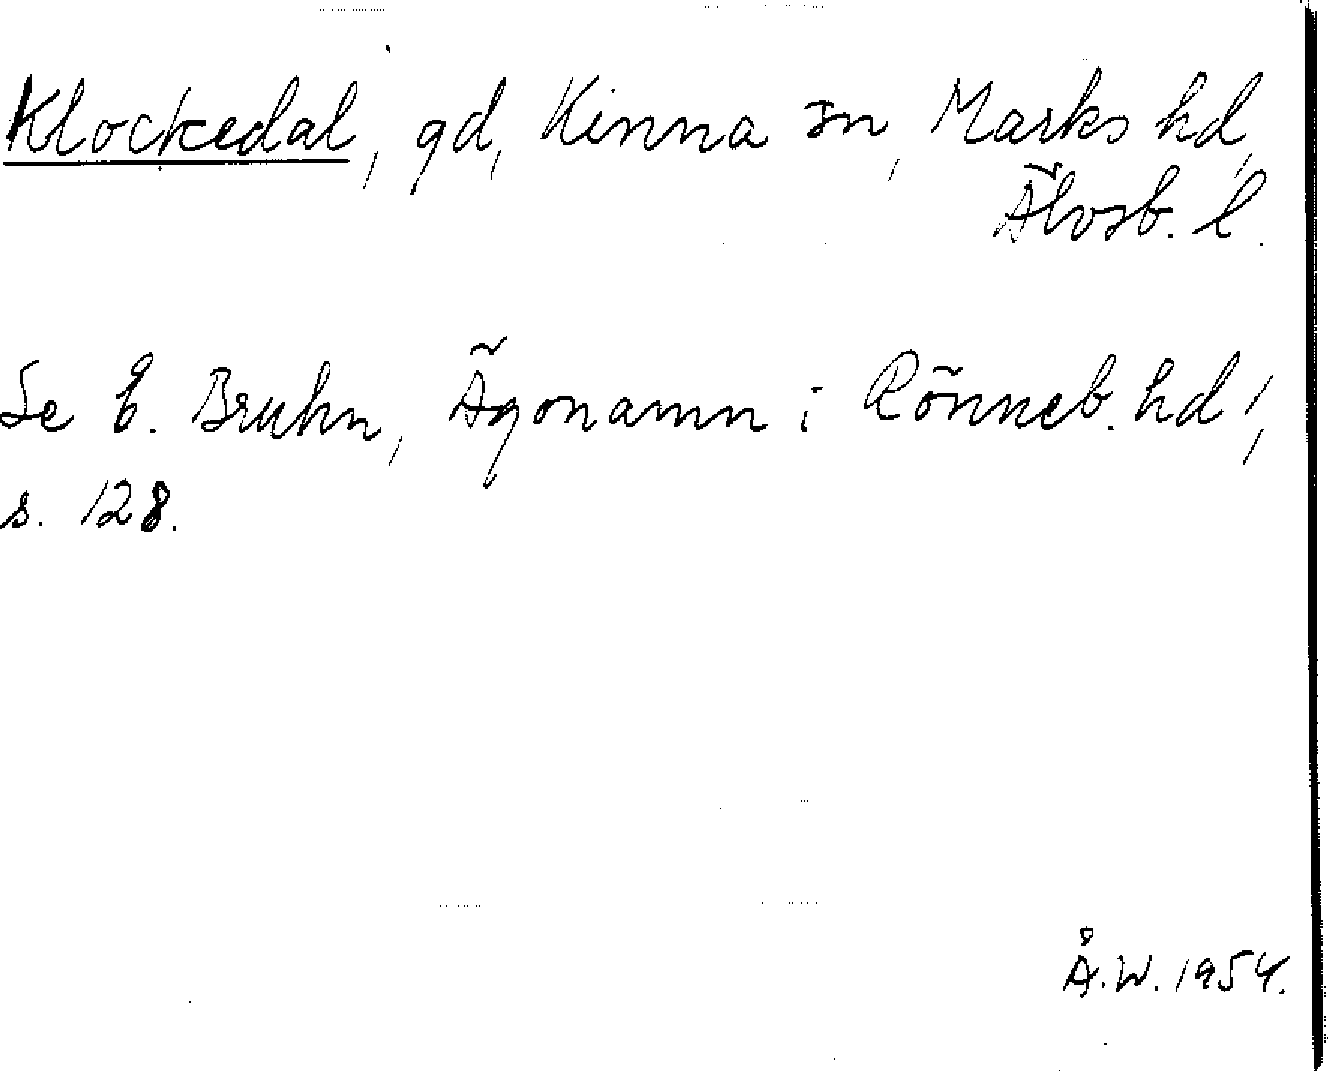 Klockedal, gd, Kinna sn, Marks hd,
Älvsb. l.
Se E. Bruhn, Ägonamn i Rönneb. hd!,
s. 128.
Å.W. 1954.